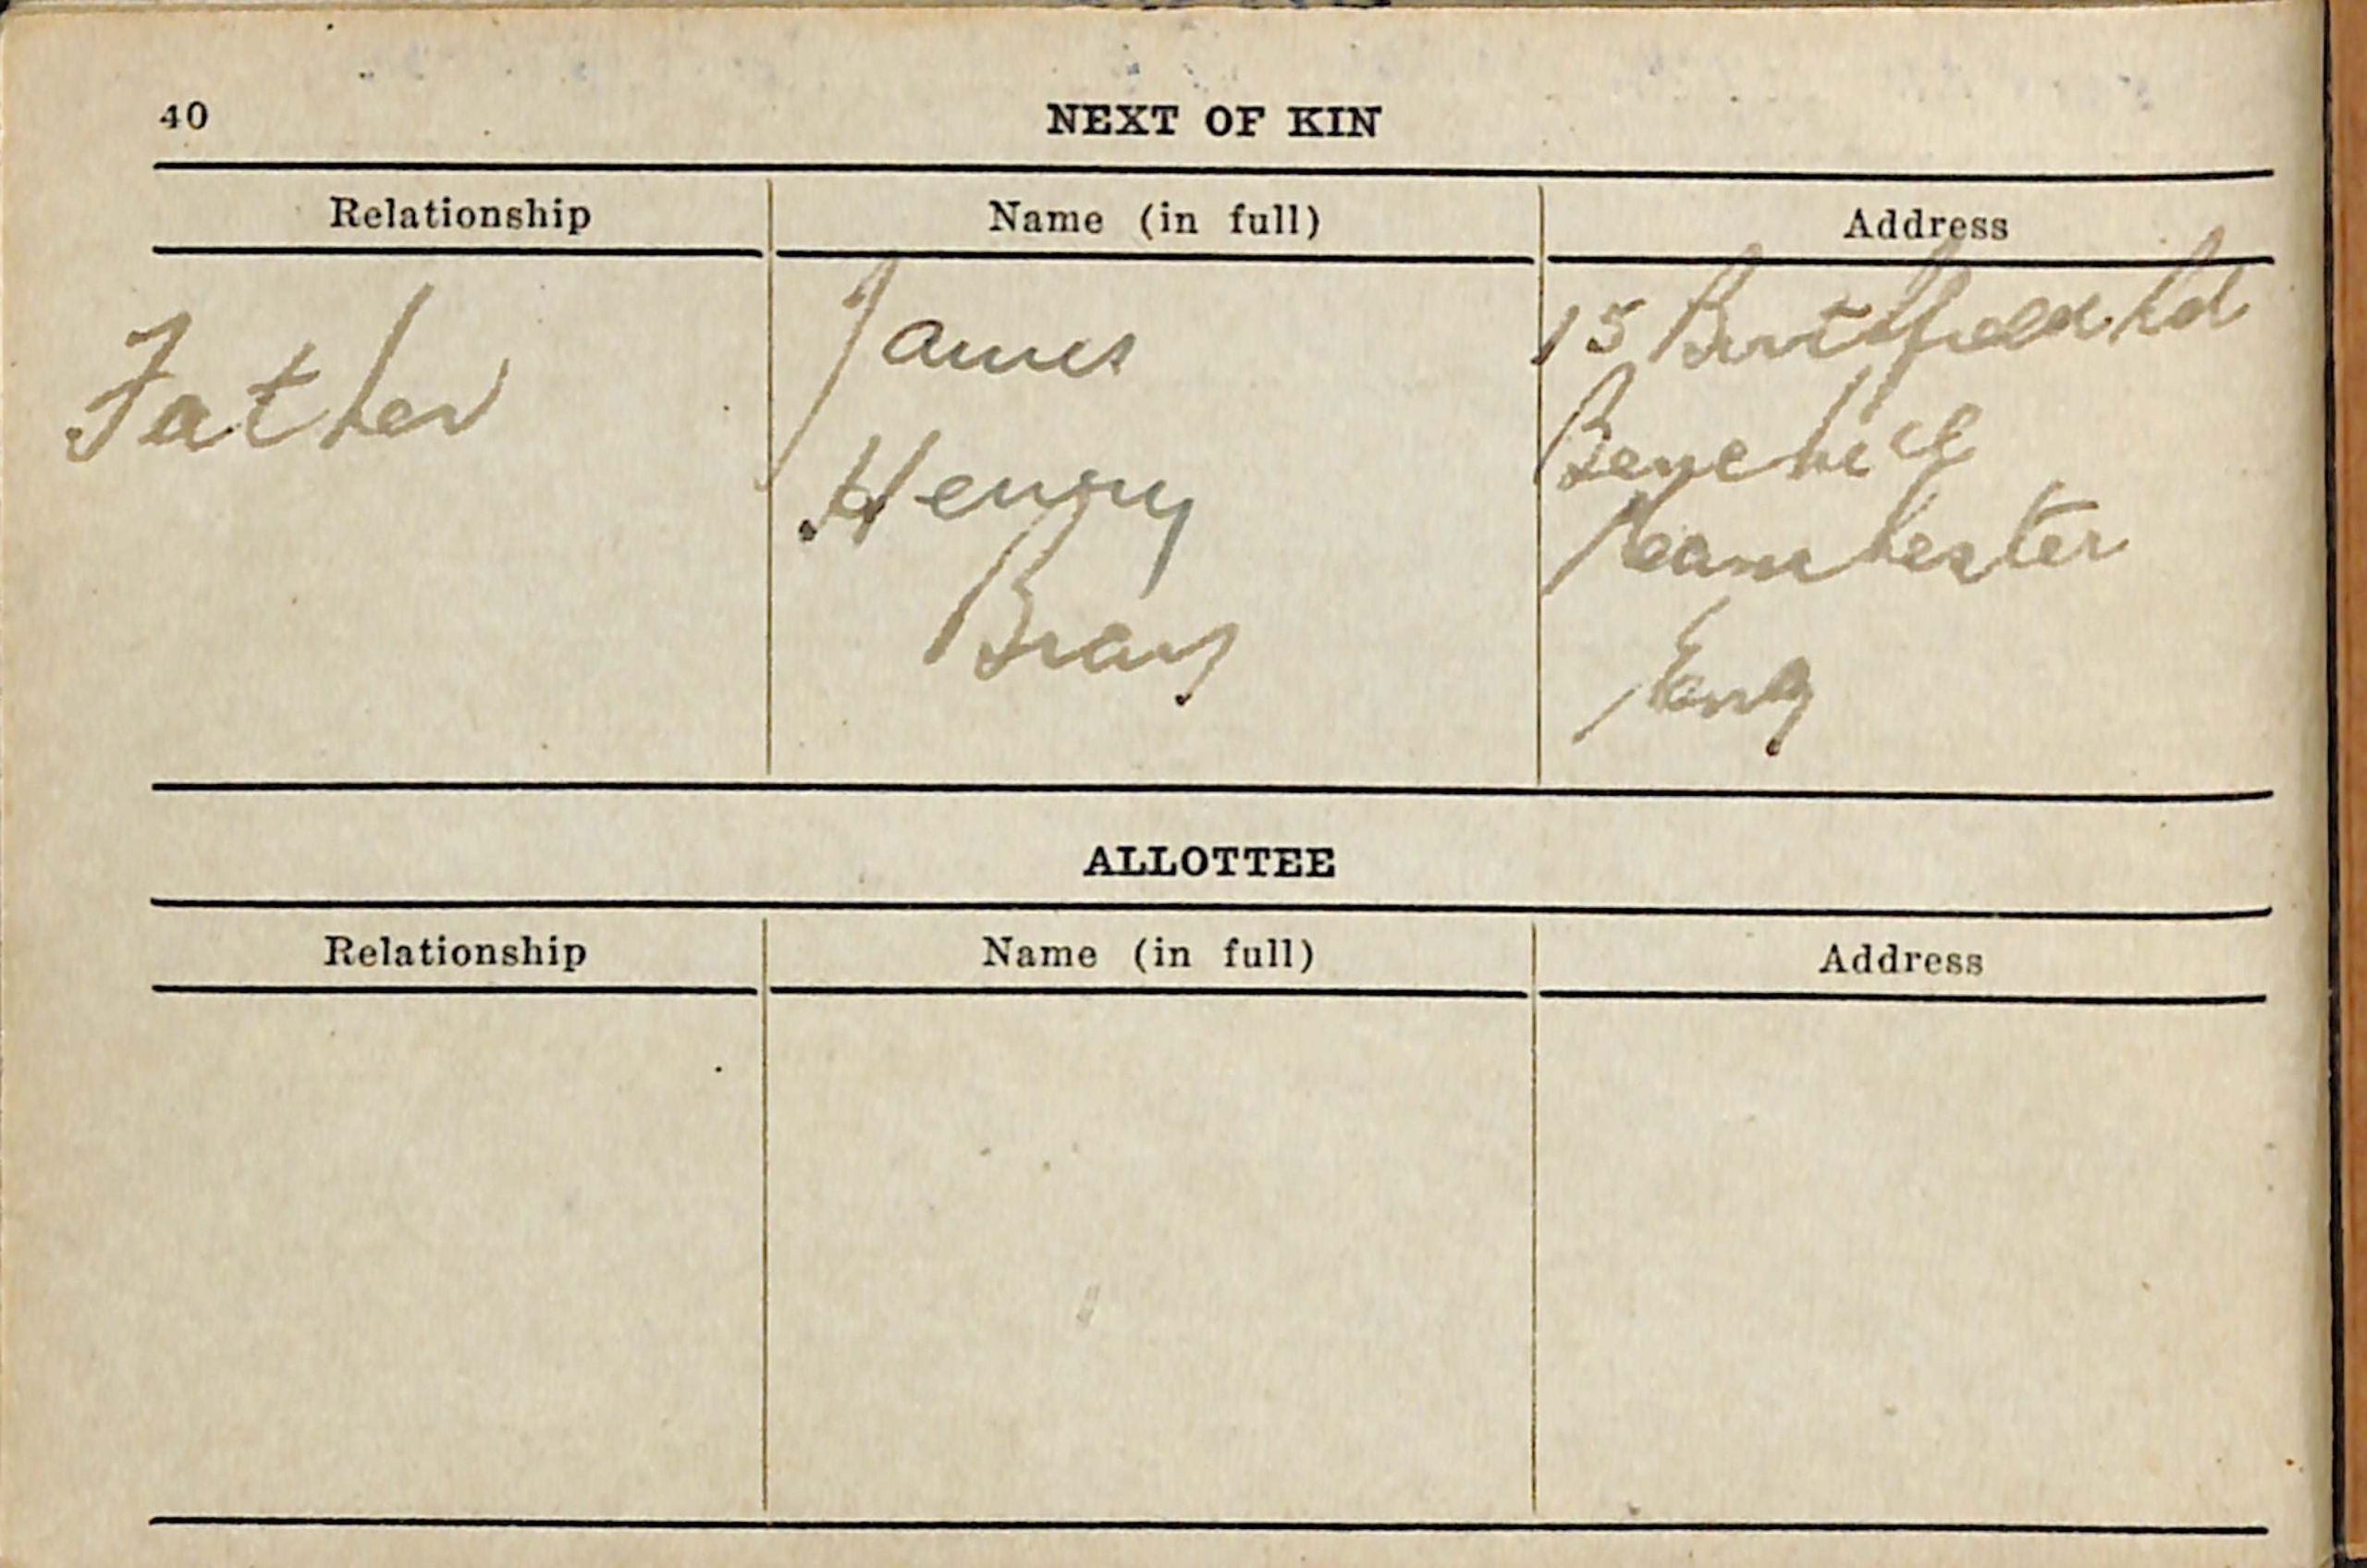 40 NEXT OF KIN
Relationship Name (in full) Address
Father James 15 Rd
Henry Benchill
Bray Manchester
Eng
ALLOTTEE
Relationship Name (in full) Address